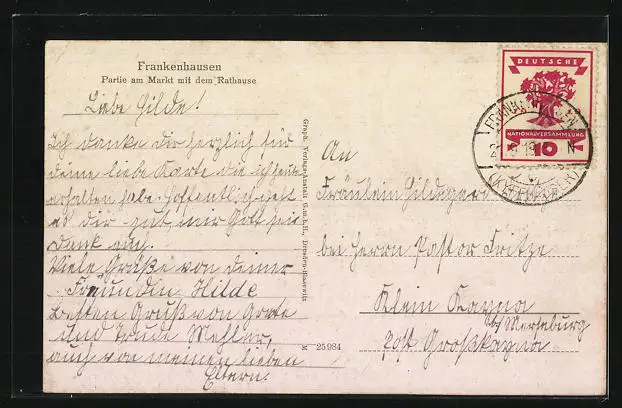 Frankenhausen
Partie am Markt mit dem Rathause
Liebe Hilde!
Ich danke dir herzlich für
deine liebe Karte die ich heute
erhalten habe. Hoffentlich geht
es dir gut, mir Gott sei
Dank auch.
Viele Grüße von deiner
Freundin Hilde
Besten Gruß von Grete
und Trude Mehler,
auch von meinen lieben
Eltern.
Graph. Verlags-Anstalt G.m.b.H., Dresden-Blasewitz
K 25984
DEUTSCHE
NATIONALVERSAMMLUNG
10
(KYFFHÄUSER)
An
Fräulein Hildegard
bei Herrn Pastor Fritze
Klein Kayna
bei Merseburg
Post Großkayna